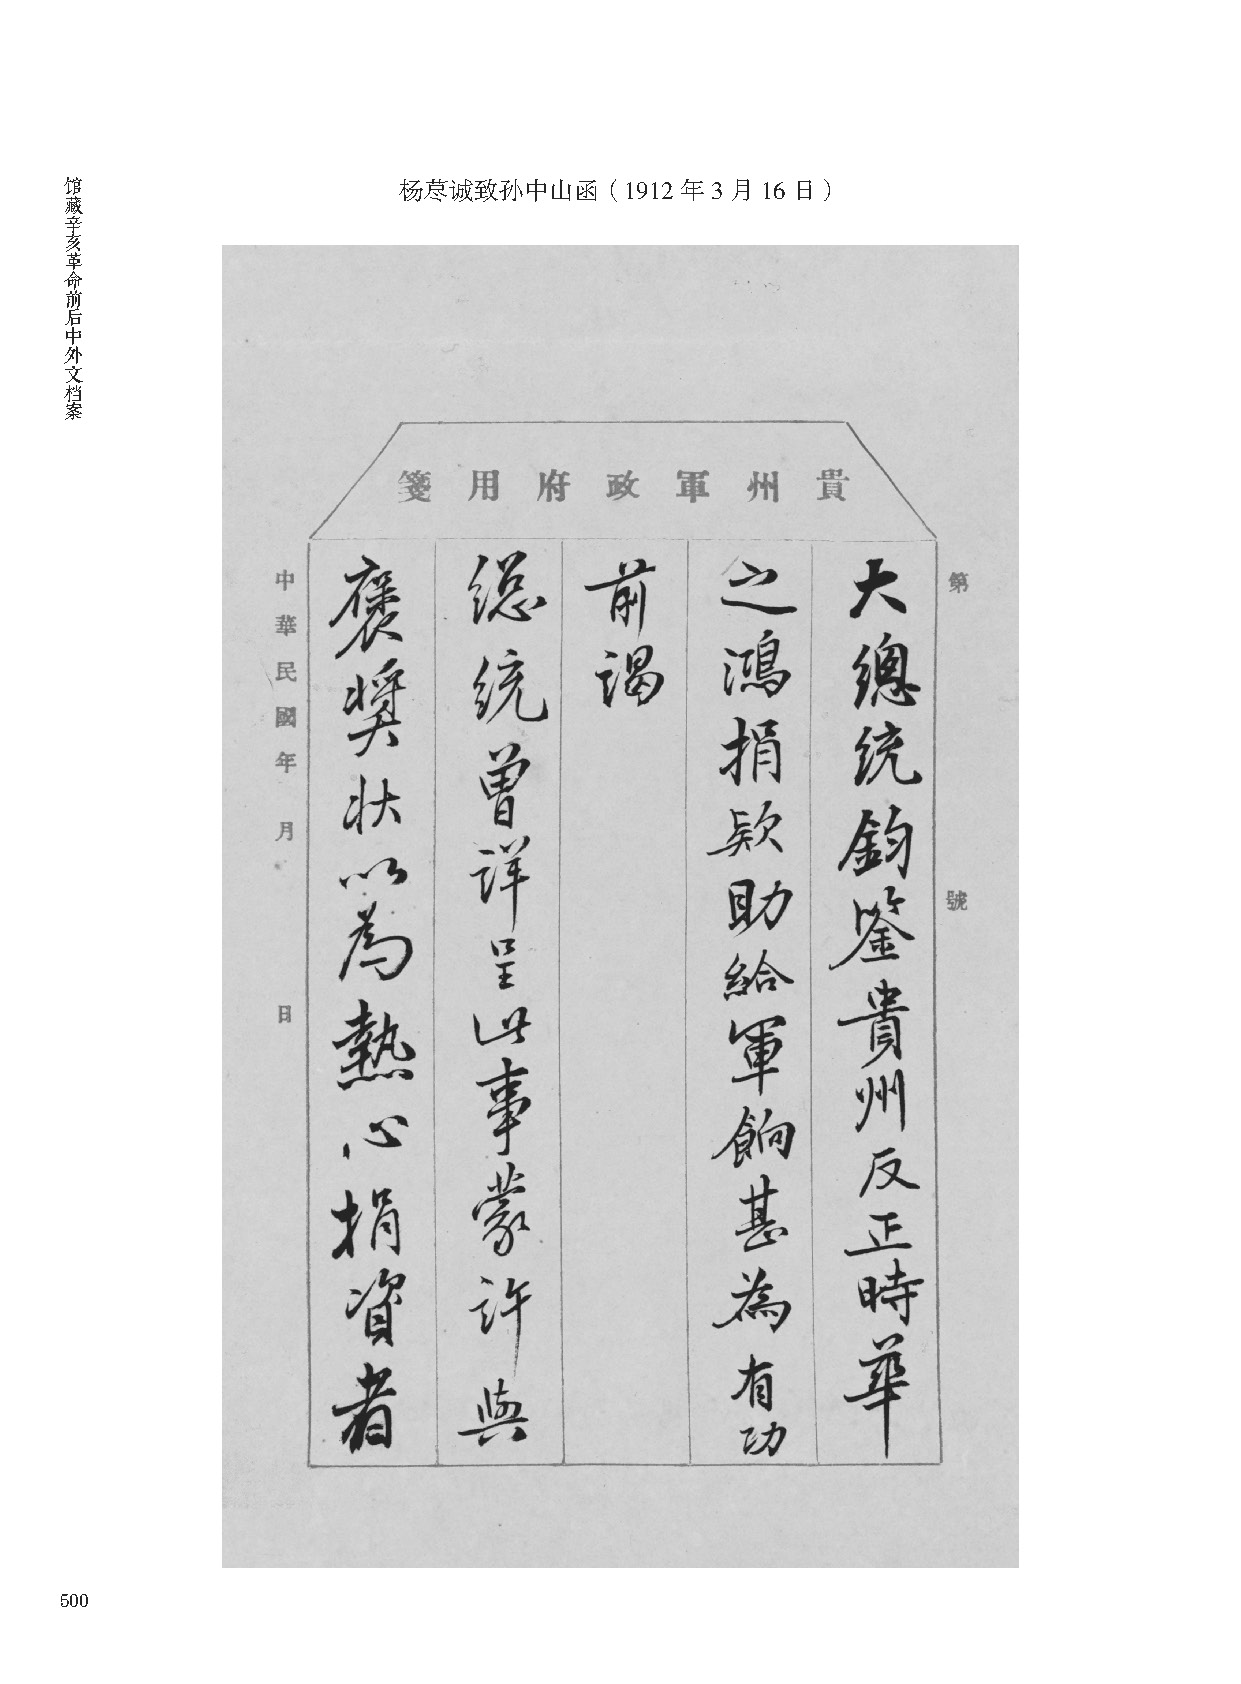 馆藏辛亥革命前后中外文档案
杨荩诚致孙中山函（1912年3月16日）
貴州軍政府用箋
第 號
大總统鈞鉴貴州反正時華
之鴻捐欵助給軍餉甚為有功
前謁
總统曾詳呈此事蒙許與
褒奨状以為熱心捐資者
中華民國年 月 日
500